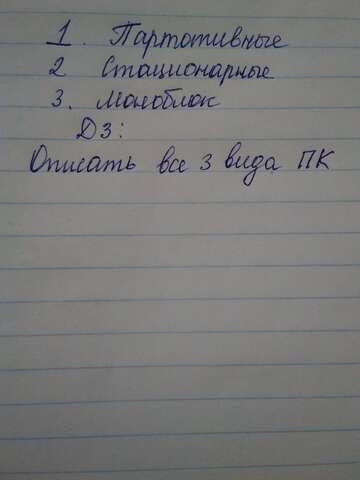 1. Партотивные
2 Стационарные
3. Моноблок
ДЗ:
Описать все 3 вида ПК